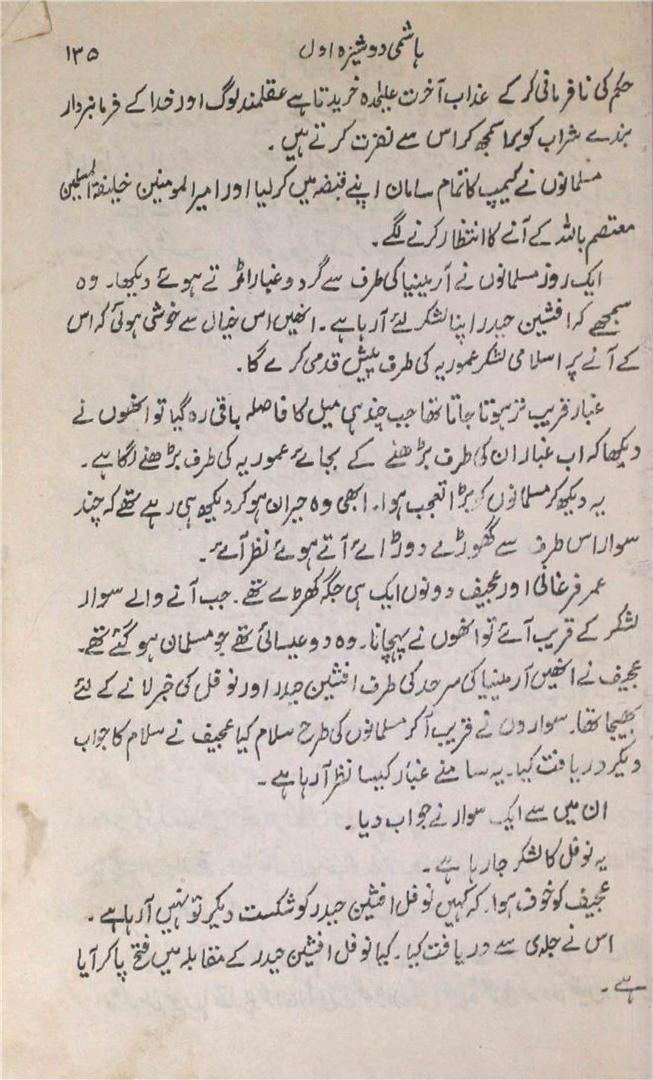 ہاشمی دوشیزہ اول ۱۳۵
حکم کی نافرمانی کر کے عذاب آخرت علیٰحدہ خریدتا ہے عقلمند لوگ اور خدا کے فرمانبردار
بندے شراب کو برا سمجھ کر اس سے نفرت کرتے ہیں ۔
مسلمانوں نے کیمپ کا تمام سامان اپنے قبضہ میں کر لیا اور امیر المومنین خلیفۃ المسلمین
معتصم باللہ کے آنے کا انتظار کرنے لگے ۔
ایک روز مسلمانوں نے آرمینیا کی طرف سے گرد و غبار اٹھتے ہوئے دیکھا۔ وہ
سمجھے کہ افشین حیدر اپنا لشکر لئے آ رہا ہے ۔ انھیں اس خیال سے خوشی ہوئی کہ اس
کے آنے پر اسلامی لشکر عموریہ کی طرف پیش قدمی کرے گا ۔
غبار قریب تر ہوتا جاتا تھا جب چند ہی میل کا فاصلہ باقی رہ گیا تو انھوں نے
دیکھا کہ اب غبار ان کی طرف بڑھنے کے بجائے عموریہ کی طرف بڑھنے لگا ہے ۔
یہ دیکھ کر مسلمانوں کو بڑا تعجب ہوا۔ ابھی وہ حیران ہو کر دیکھ ہی رہے تھے کہ چند
سوار اس طرف سے گھوڑے دوڑائے آتے ہوئے نظر آئے ۔
عمر فرغانی اور عجیف دونوں ایک ہی جگہ کھڑے تھے ۔ جب آنے والے سوار
لشکر کے قریب آئے تو انھوں نے پہچانا۔ وہ دو عیسائی تھے جو مسلمان ہو گئے تھے ۔
عجیف نے انھیں آرمینیا کی سرحد کی طرف افشین حیدر اور نوفل کی خبر لانے کے لئے
بھیجا تھا۔ سواروں نے قریب آ کر مسلمانوں کی طرح سلام کیا عجیف نے سلام کا جواب
دیکر دریافت کیا۔ یہ سامنے غبار کیسا نظر آ رہا ہے ۔
ان میں سے ایک سوار نے جواب دیا ۔
یہ نوفل کا لشکر جا رہا ہے ۔
عجیف کو خوف ہوا۔ کہ کہیں نوفل افشین حیدر کو شکست دیکر تو نہیں آ رہا ہے ۔
اس نے جلدی سے دریافت کیا ۔ کیا نوفل افشین حیدر کے مقابلہ میں فتح پا کر آیا
ہے ۔